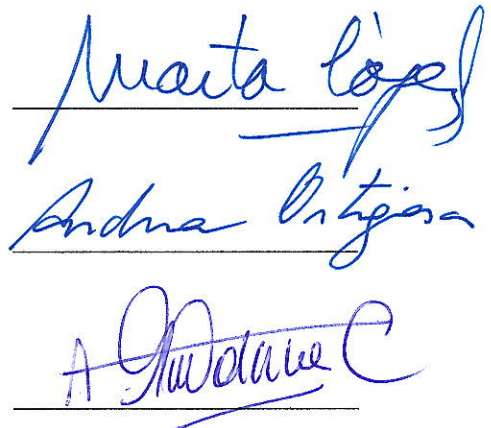 Marta López
Andrea Ortigosa
A C